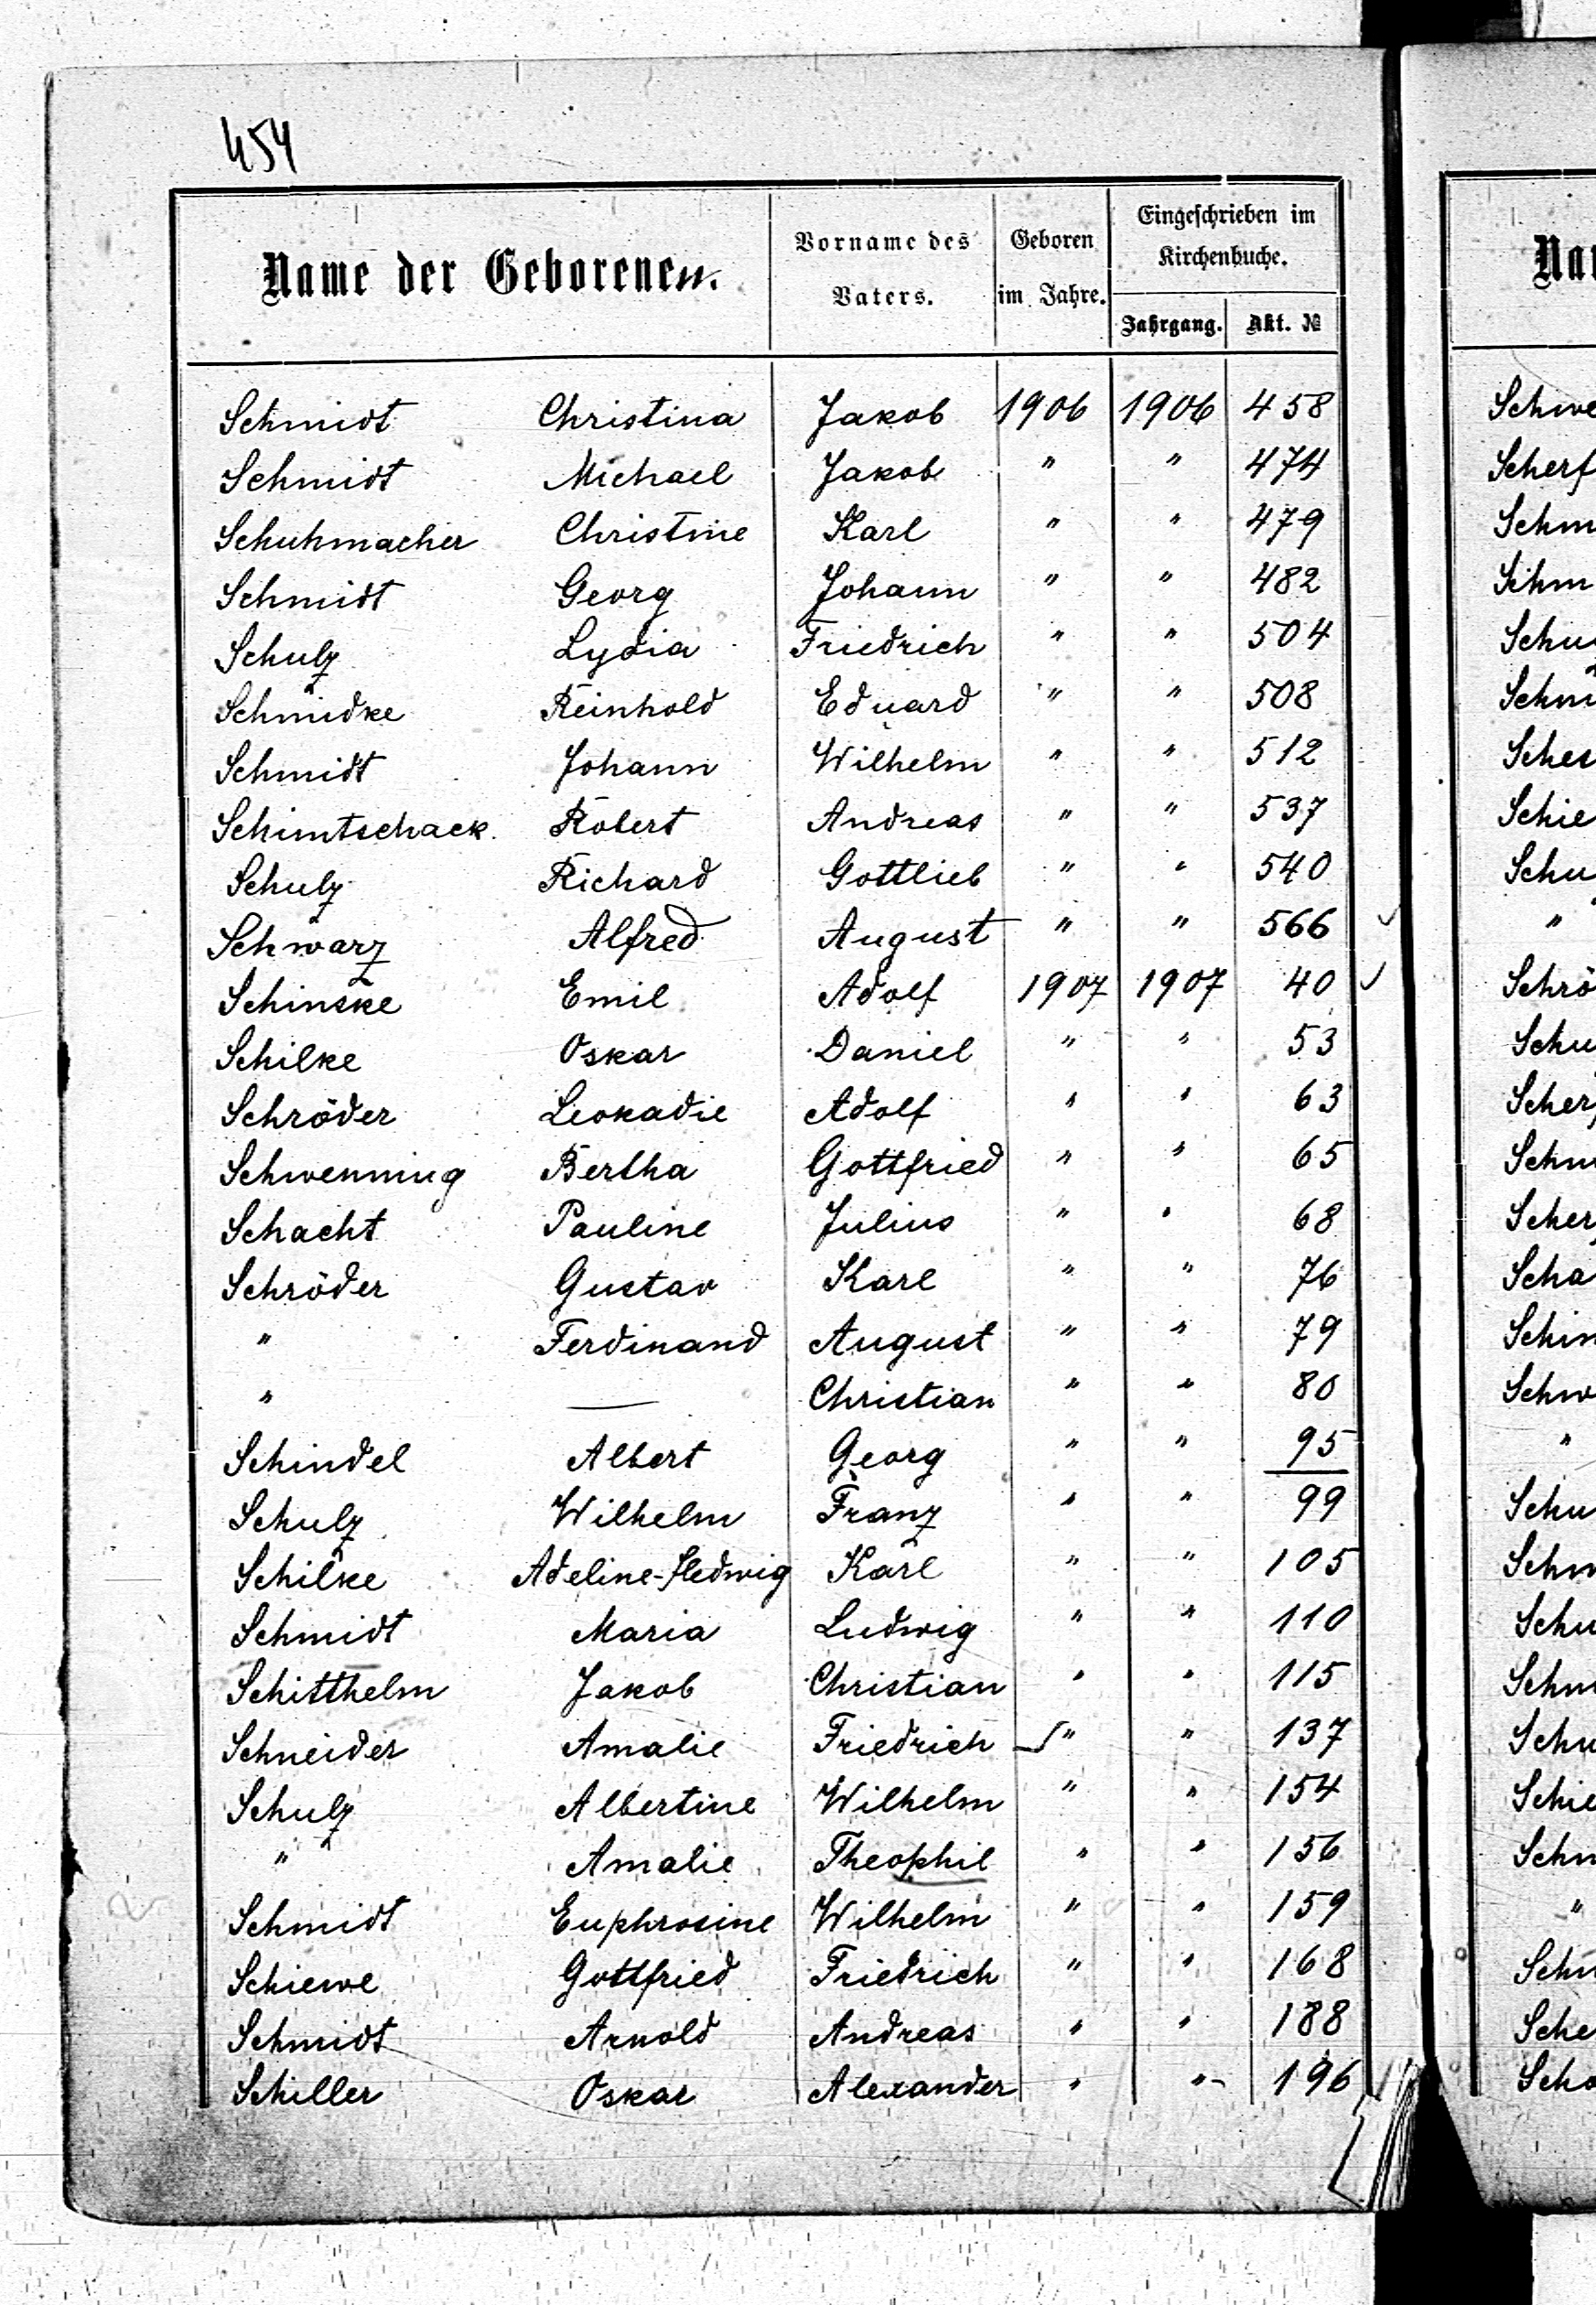 454
Name der Geborenen.
Vorname des Vaters.
Geboren im Jahre.
Eingeschrieben im Kirchenbuche.
Jahrgang. Akt. №
Schmidt Christina Jakob 1906 1906 458
Schmidt Michael Jakob " " 474
Schuhmacher Christine Karl " " 479
Schmidt Georg Johann " " 482
Schulz Lydia Friedrich " " 504
Schmidke Reinhold Eduard " " 508
Schmidt Johann Wilhelm " " 512
Schimtschack Robert Andreas " " 537
Schulz Richard Gottlieb " " 540
Schwarz Alfred August " " 566
Schinske Emil Adolf 1907 1907 40
Schilke Oskar Daniel " " 53
Schröder Leokadie Adolf " " 63
Schwenning Bertha Gottfried " " 65
Schacht Pauline Julius " " 68
Schröder Gustav Karl " " 76
" Ferdinand August " " 79
" — Christian " " 80
Schindel Albert Georg " " 95
Schulz Wilhelm Franz " " 99
Schilke Adeline-Hedwig Karl " " 105
Schmidt Maria Ludwig " " 110
Schitthelm Jakob Christian " " 115
Schneider Amalie Friedrich " " 137
Schulz Albertine Wilhelm " " 154
" Amalie Theophil " " 156
Schmidt Euphrosine Wilhelm " " 159
Schiewe Gottfried Friedrich " " 168
Schmidt Arnold Andreas " " 188
Schiller Oskar Alexander " " 196